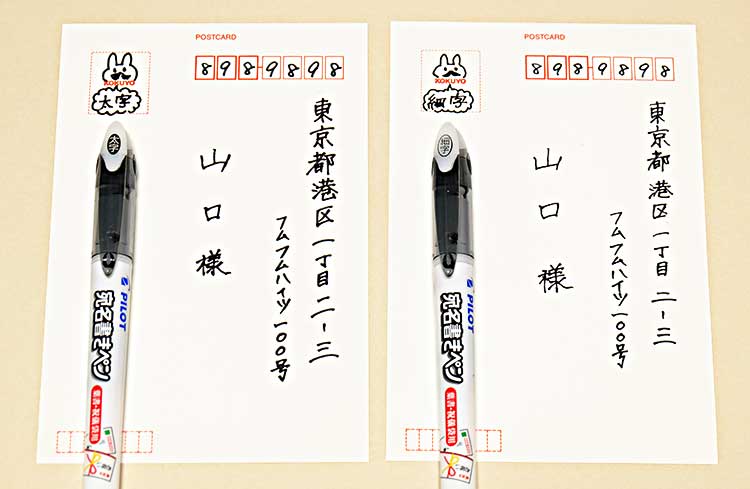 POSTCARD
KOKUYO
太字
898-9898
東京都港区一丁目二-三
フムフムハイツ一〇〇号
山口様
太字
PILOT
宛名書きペン
POSTCARD
KOKUYO
細字
898-9898
東京都港区一丁目二-三
フムフムハイツ一〇〇号
山口様
細字
PILOT
宛名書きペン